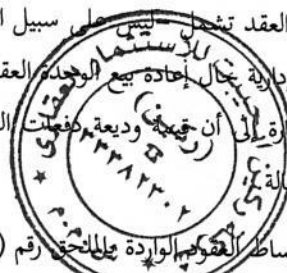 العقد تشمل -ليس على سبيل ال
إدارية حال إعادة بيع الوحدة العق
رة إلى أن قيمة وديعة دفعت ال
الة
ساط العقود الواردة بالملحق رقم (
للاستثمار
٣٣٣٨٢٣٠٢